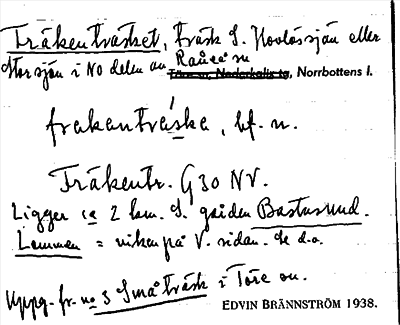 Fräkenträsket, träsk S. Hovlössjön eller
Storsjön i NO delen av Råneå sn
Töre sn, Nederkalix tg, Norrbottens l.
frakentráska, bf. n.
Fräkentr. G30 NV.
Ligger ca 2 km. S. gården Bastusund.
Lemmen = viken på V. sidan. Se d.o.
Uppg. fr. no 3 Småträsk i Töre sn.
EDVIN BRÄNNSTRÖM 1938.